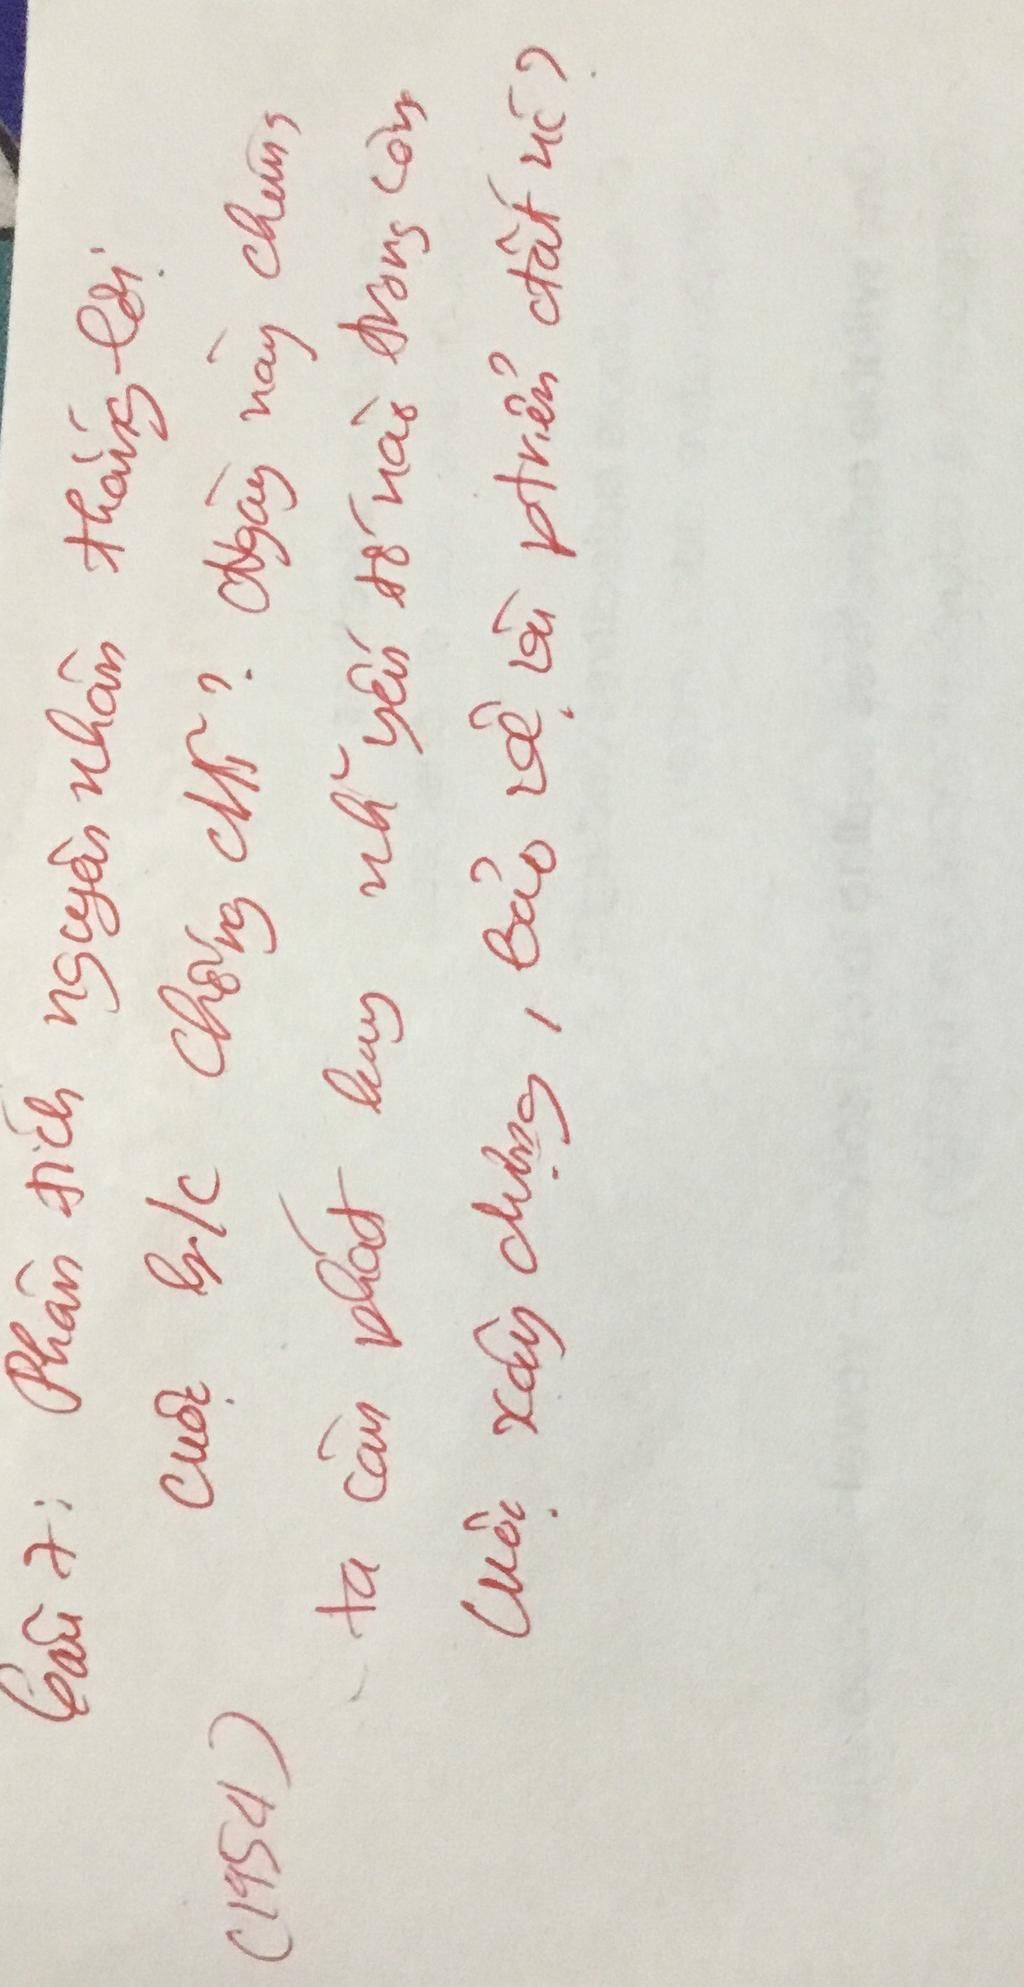 Câu 7: Phân tích nguyên nhân thắng lợi
cuộc k/c chống Mĩ? Ngày này chúng
(1954)
ta cần phát huy nh~ yếu tố nào trong còn
cuộc xây dựng, bảo vệ và ptriển đất nc?